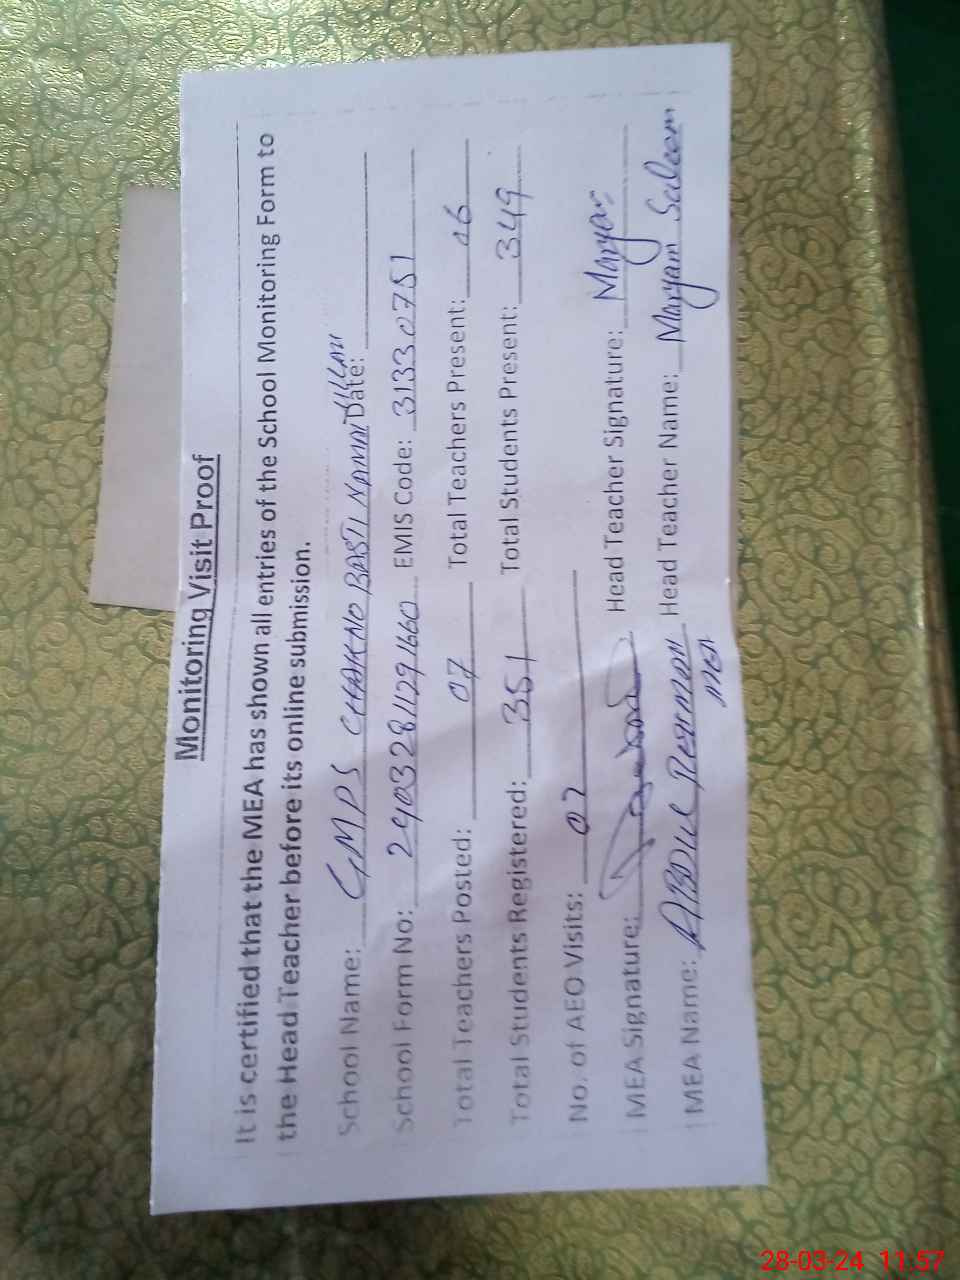 Monitoring Visit Proof
It is certified that the MEA has shown all entries of the School Monitoring Form to
the Head Teacher before its online submission.
School Name: GMPS CHAK NO BASTI Date:
School Form No: 24032811291660 EMIS Code: 31330751
Total Teachers Posted: 07 Total Teachers Present: 06
Total Students Registered: 351 Total Students Present: 349
No. of AEO Visits: 02
MEA Signature: Head Teacher Signature: Maryam
MEA Name: ABDUL REHMAN Head Teacher Name: Maryam Saleem
MEA
28-03-24 11:57